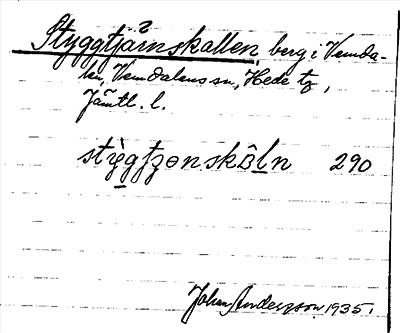 Styggtjärnskallen, berg i Vemda-
len, Vemdalens sn, Hede tg,
Jämtl. l.
290
Johan Andersson 1935.